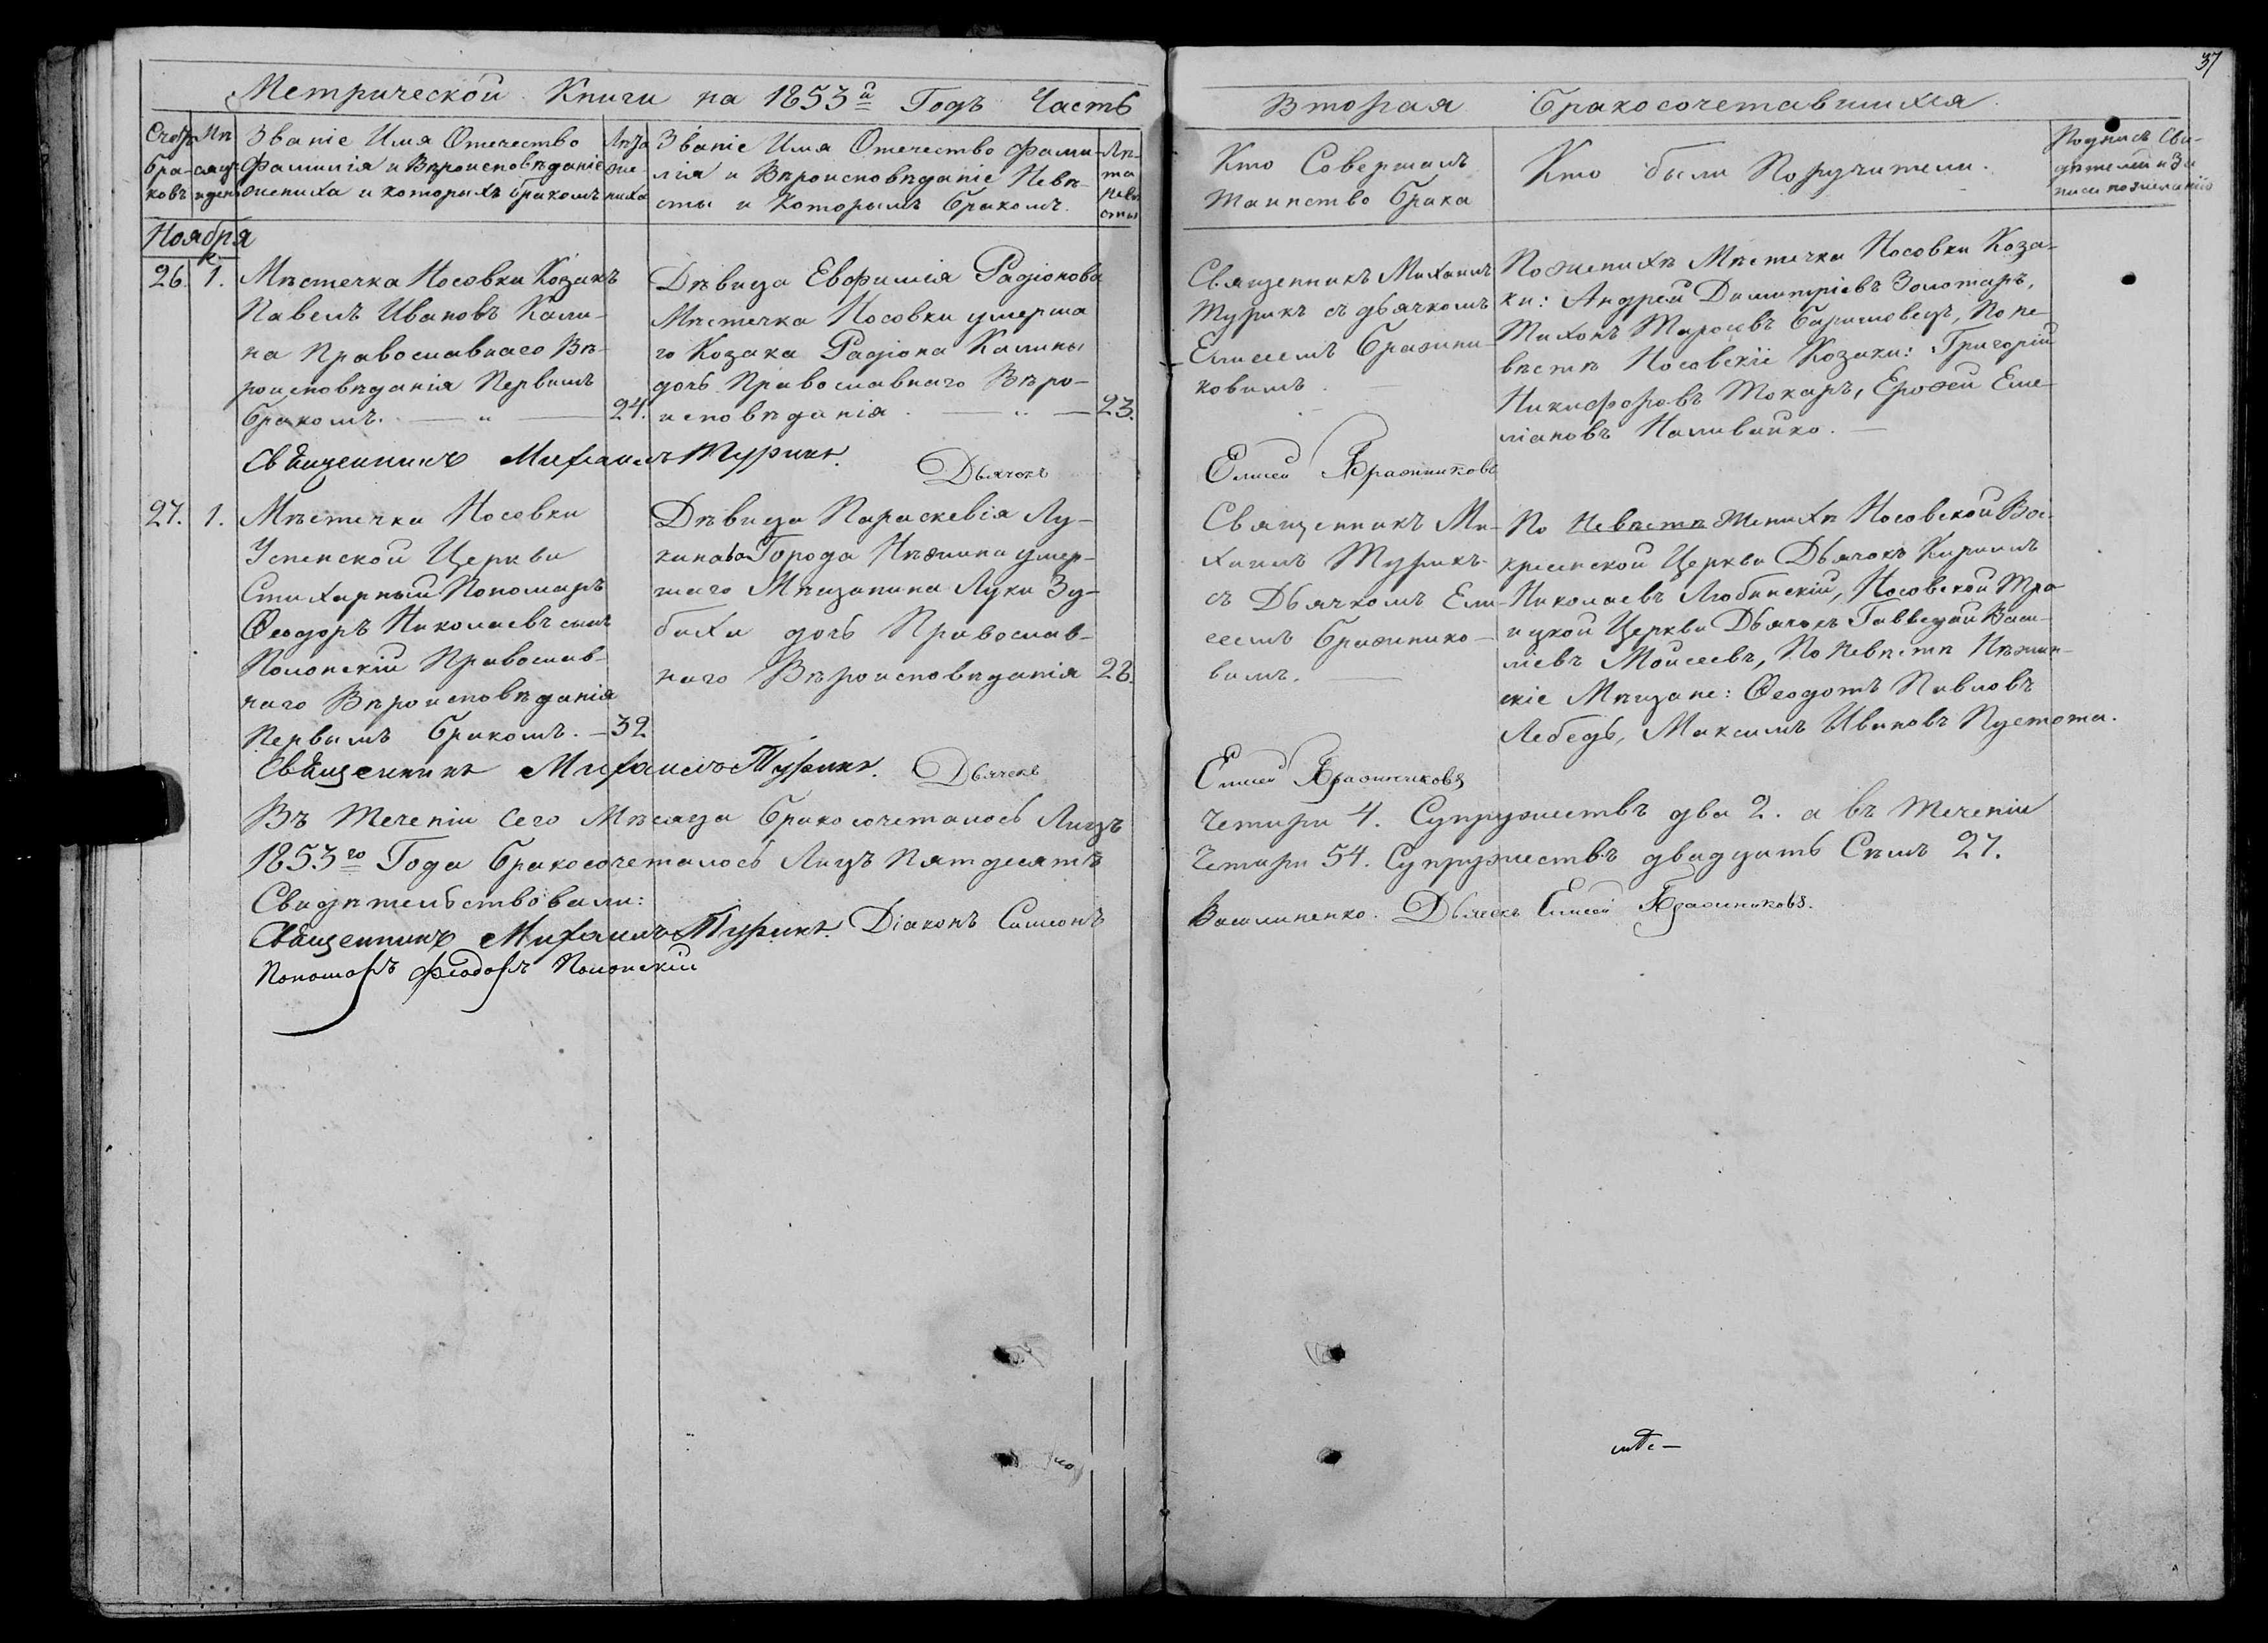 37
Метрической Книги на 1853й Годъ Часть
Вторая Бракосочетавшихся
Счетъ браковъ
Мѣсяцъ и день
Званіе Имя Отечество
Фамилія и Вѣроисповѣданіе
жениха и которыхъ бракомъ
Лѣта жениха
Званіе Имя Отечество Фами-
лія и Вѣроисповѣданіе Невѣ-
сты и Которымъ бракомъ.
Лѣ-
та
невѣ
сты
Кто Совершалъ
Таинство брака
Кто были Поручители.
Подпись Сви-
дѣтелей и За
писи по желанію
Ноября
26. 1.
Мѣстечка Носовки Козакъ
Павелъ Ивановъ Кали-
на Православнаго Вѣ-
роисповѣданія Первымъ
бракомъ. — " —
24.
Дѣвица Евфимія Радіонова
Мѣстечка Носовки умерша
го Козака Радіона Калины
дочь Православнаго Вѣро-
исповѣданія. —
23.
Священникъ Михаилъ
Турикъ съ дьячкомъ
Елисеемъ Бражни-
ковимъ. —
По женихѣ Мѣстечка Носовки Коза-
ки: Андрей Димитріевъ Золотарь,
Тихонъ Тарасевъ Баришовецъ, По не-
вѣстѣ Носовскіе Козаки: Григорій
Никифоровъ Токарь, Ерофей Еме-
ліановъ Наливайко. —
Священникъ Михаилъ Турикъ. Дьячокъ Елисей Бражниковъ
27. 1.
Мѣстечка Носовки
Успенской Церкви
Стихарный Пономарь
Ѳеодоръ Николаевъ сынъ
Полонскій Православ-
наго Вѣроисповѣданія
Первымъ бракомъ. —
32
Дѣвица Параскевія Лу-
кинова Города Нѣжина умер-
шаго Мѣщанина Луки Зу-
бахи дочь Православ-
наго Вѣроисповѣданія
28.
Священникъ Ми-
хаилъ Турикъ
съ Дьячкомъ Ели-
сеемъ Бражнико-
вимъ. —
По Невѣстѣ Женихѣ Носовской Вос-
кресенской Церкви Дьячокъ Кириллъ
Николаевъ Любинскій, Носовской Тро
ицкой Церкви Дьячокъ Васи-
ліевъ Моисеевъ, По Невѣстѣ Нѣжин-
скіе Мѣщане: Ѳеодотъ Павловъ
Лебедь, Максимъ Ивановъ Пустота.
Священникъ Михаилъ Турикъ. Дьячекъ Елисей Бражниковъ
Въ теченіи сего Мѣсяца бракосочеталось Лицъ Четыри 4. Супружествъ два 2. а въ теченіи
1853го Года бракосочеталось Лицъ Пятдесятъ Четири 54. Супружествъ двадцать Сѣмъ 27.
Свидѣтельствовали:
Священникъ Михаилъ Турикъ. Діаконъ Симеонъ Василиненко. Дьячекъ Елисей Бражниковъ.
Пономарь Феодоръ Полонскій